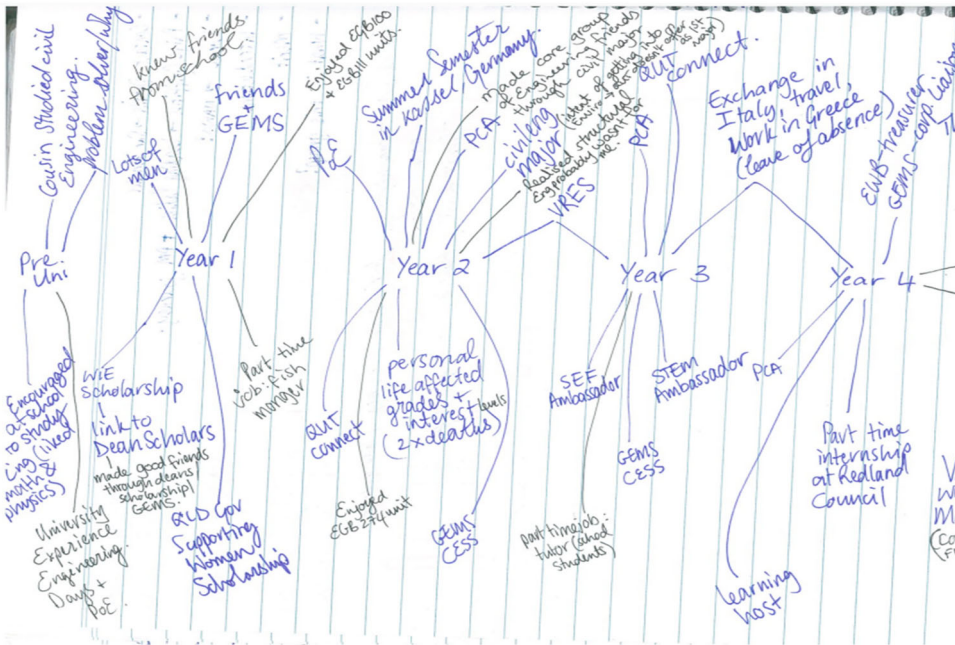 Cousin Studied civil
Engineering.
Problem Solver/Why
Pre
Uni
Encouraged
at school
to study
Eng (liked
math &
physics)
University
Experience
Engineering.
Days +
PoE.
Lots of
men
knew friends
from school
friends
+
GEMS
Enjoyed EGB100
+ EGB111 units.
Year 1
WiE
Scholarship
link to
Dean Scholars
made good friends
through deans
scholarship/
GEMS.
QLD Gov
Supporting
Women
Scholarship
Part time
job: fish
monger
PoE
Summer Semester
in Kassel, Germany.
PCA
made core group
of Engineering friends
through civil major
civil eng
major
(intent of getting into
Environ
major)
Realised structural
Eng probably wasn't for
me.
VRES
Year 2
QUT
connect
Enjoyed
EGB274 unit
personal
life affected
grades +
interest levels
(2 x deaths)
GEMS
CESS
PCA
QUT
connect.
Exchange in
Italy, travel,
Work in Greece
(leave of absence)
Year 3
SEF
Ambassador
part time job:
tutor (school
students)
GEMS
CESS
STEM
Ambassador
EWB-treasurer
GEMS-corp. Liaison
Year 4
PCA
learning
host
Part time
internship
at Redland
Council